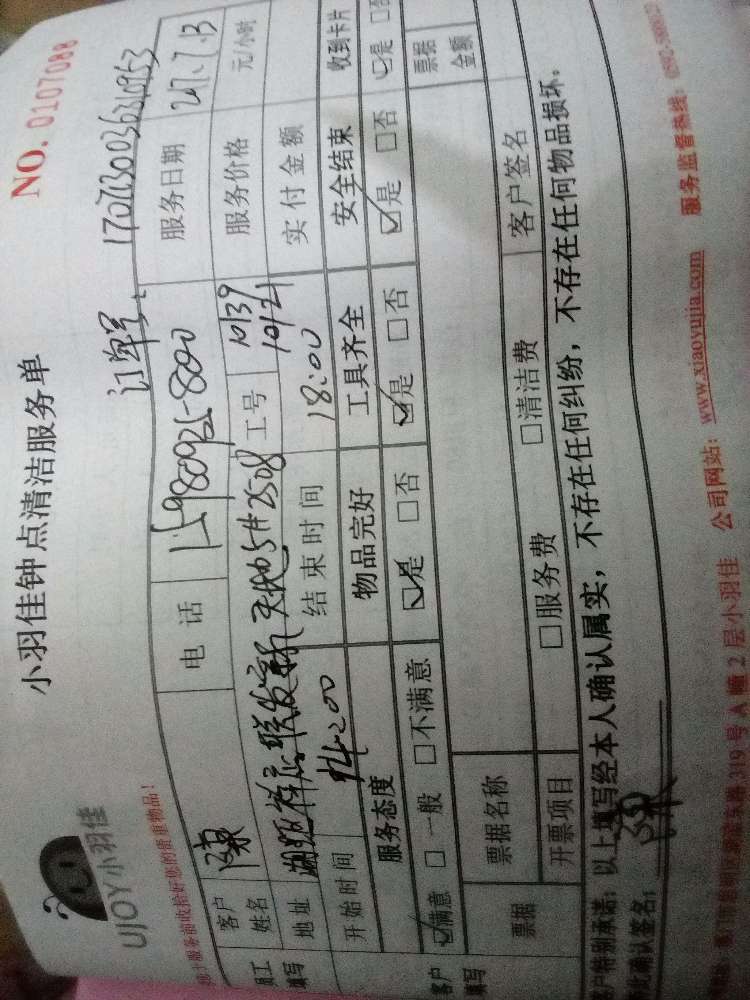 小羽佳钟点清洁服务单
NO. 0107088
UJOY小羽佳
服务前收拾好您的贵重物品!
订单号: 170713003630953
员工填写 客户姓名 陈 电话 15980925800 服务日期 2017.7.13
地址 湖 祥店联发新天地5#2508 工号 10139 10121 服务价格 元/小时
开始时间 14:00 结束时间 18:00 实付金额
客户填写 服务态度 物品完好 工具齐全 安全结束 收到卡片
☑满意 □一般 □不满意 ☑是 □否 ☑是 □否 ☑是 □否 ☑是 □否
票据 票据名称 票据金额
开票项目 □服务费 □清洁费 客户签名
客户特别承诺:以上填写经本人确认属实,不存在任何纠纷,不存在任何物品损坏。
此确认签名: 陈
319号A幢2层小羽佳 公司网站: www.xiaoyujia.com 服务监督热线: